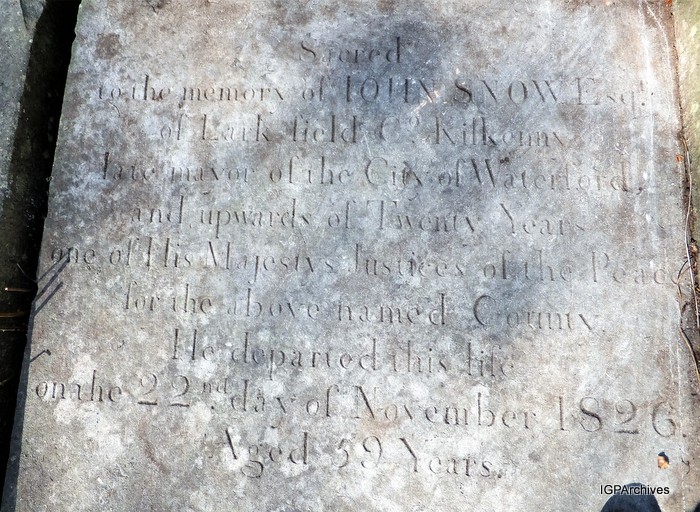 Sacred
to the memory of IOHN SNOW Esqr.
of Larkfield Co. Kilkenny
late mayor of the City of Waterford,
and upwards of Twenty Years
one of His Majestys Justices of the Peace
for the above named County.
He departed this life
on the 22nd. day of November 1826.
Aged 59 Years.
IGPArchives